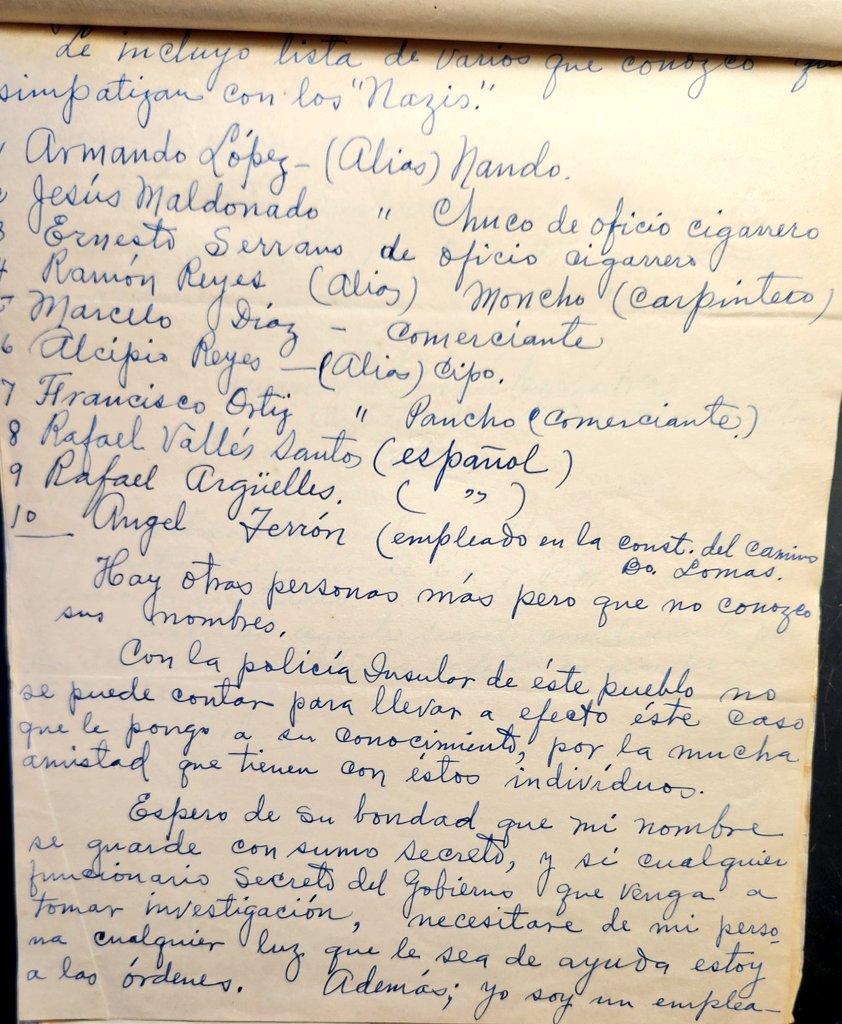 Le incluyo lista de varios que conozco qu
simpatizan con los "Nazis".
1 Armando López - (Alias) Nando.
2 Jesús Maldonado " Chuco de oficio cigarrero
3 Ernesto Serrano de oficio cigarrero
4 Ramón Reyes (Alias) Moncho (carpintero)
5 Marcelo Díaz - Comerciante
6 Alcipio Reyes - (Alias) Cipo.
7 Francisco Ortiz " Pancho (comerciante)
8 Rafael Vallés Santos (español)
9 Rafael Argüelles. ( " )
10 Angel Ferrón (empleado en la const. del camino
Bo. Lomas.
Hay otras personas más pero que no conozco
sus nombres.
Con la policía Insular de éste pueblo no
se puede contar para llevar a efecto éste caso
que le pongo a su conocimiento, por la mucha
amistad que tienen con éstos indivíduos.
Espero de su bondad que mi nombre
se guarde con sumo secreto, y si cualquier
funcionario Secreto del Gobierno que venga a
tomar investigación, necesitare de mi perso-
na cualquier luz que le sea de ayuda estoy
a las órdenes. Además; yo soy un emplea-